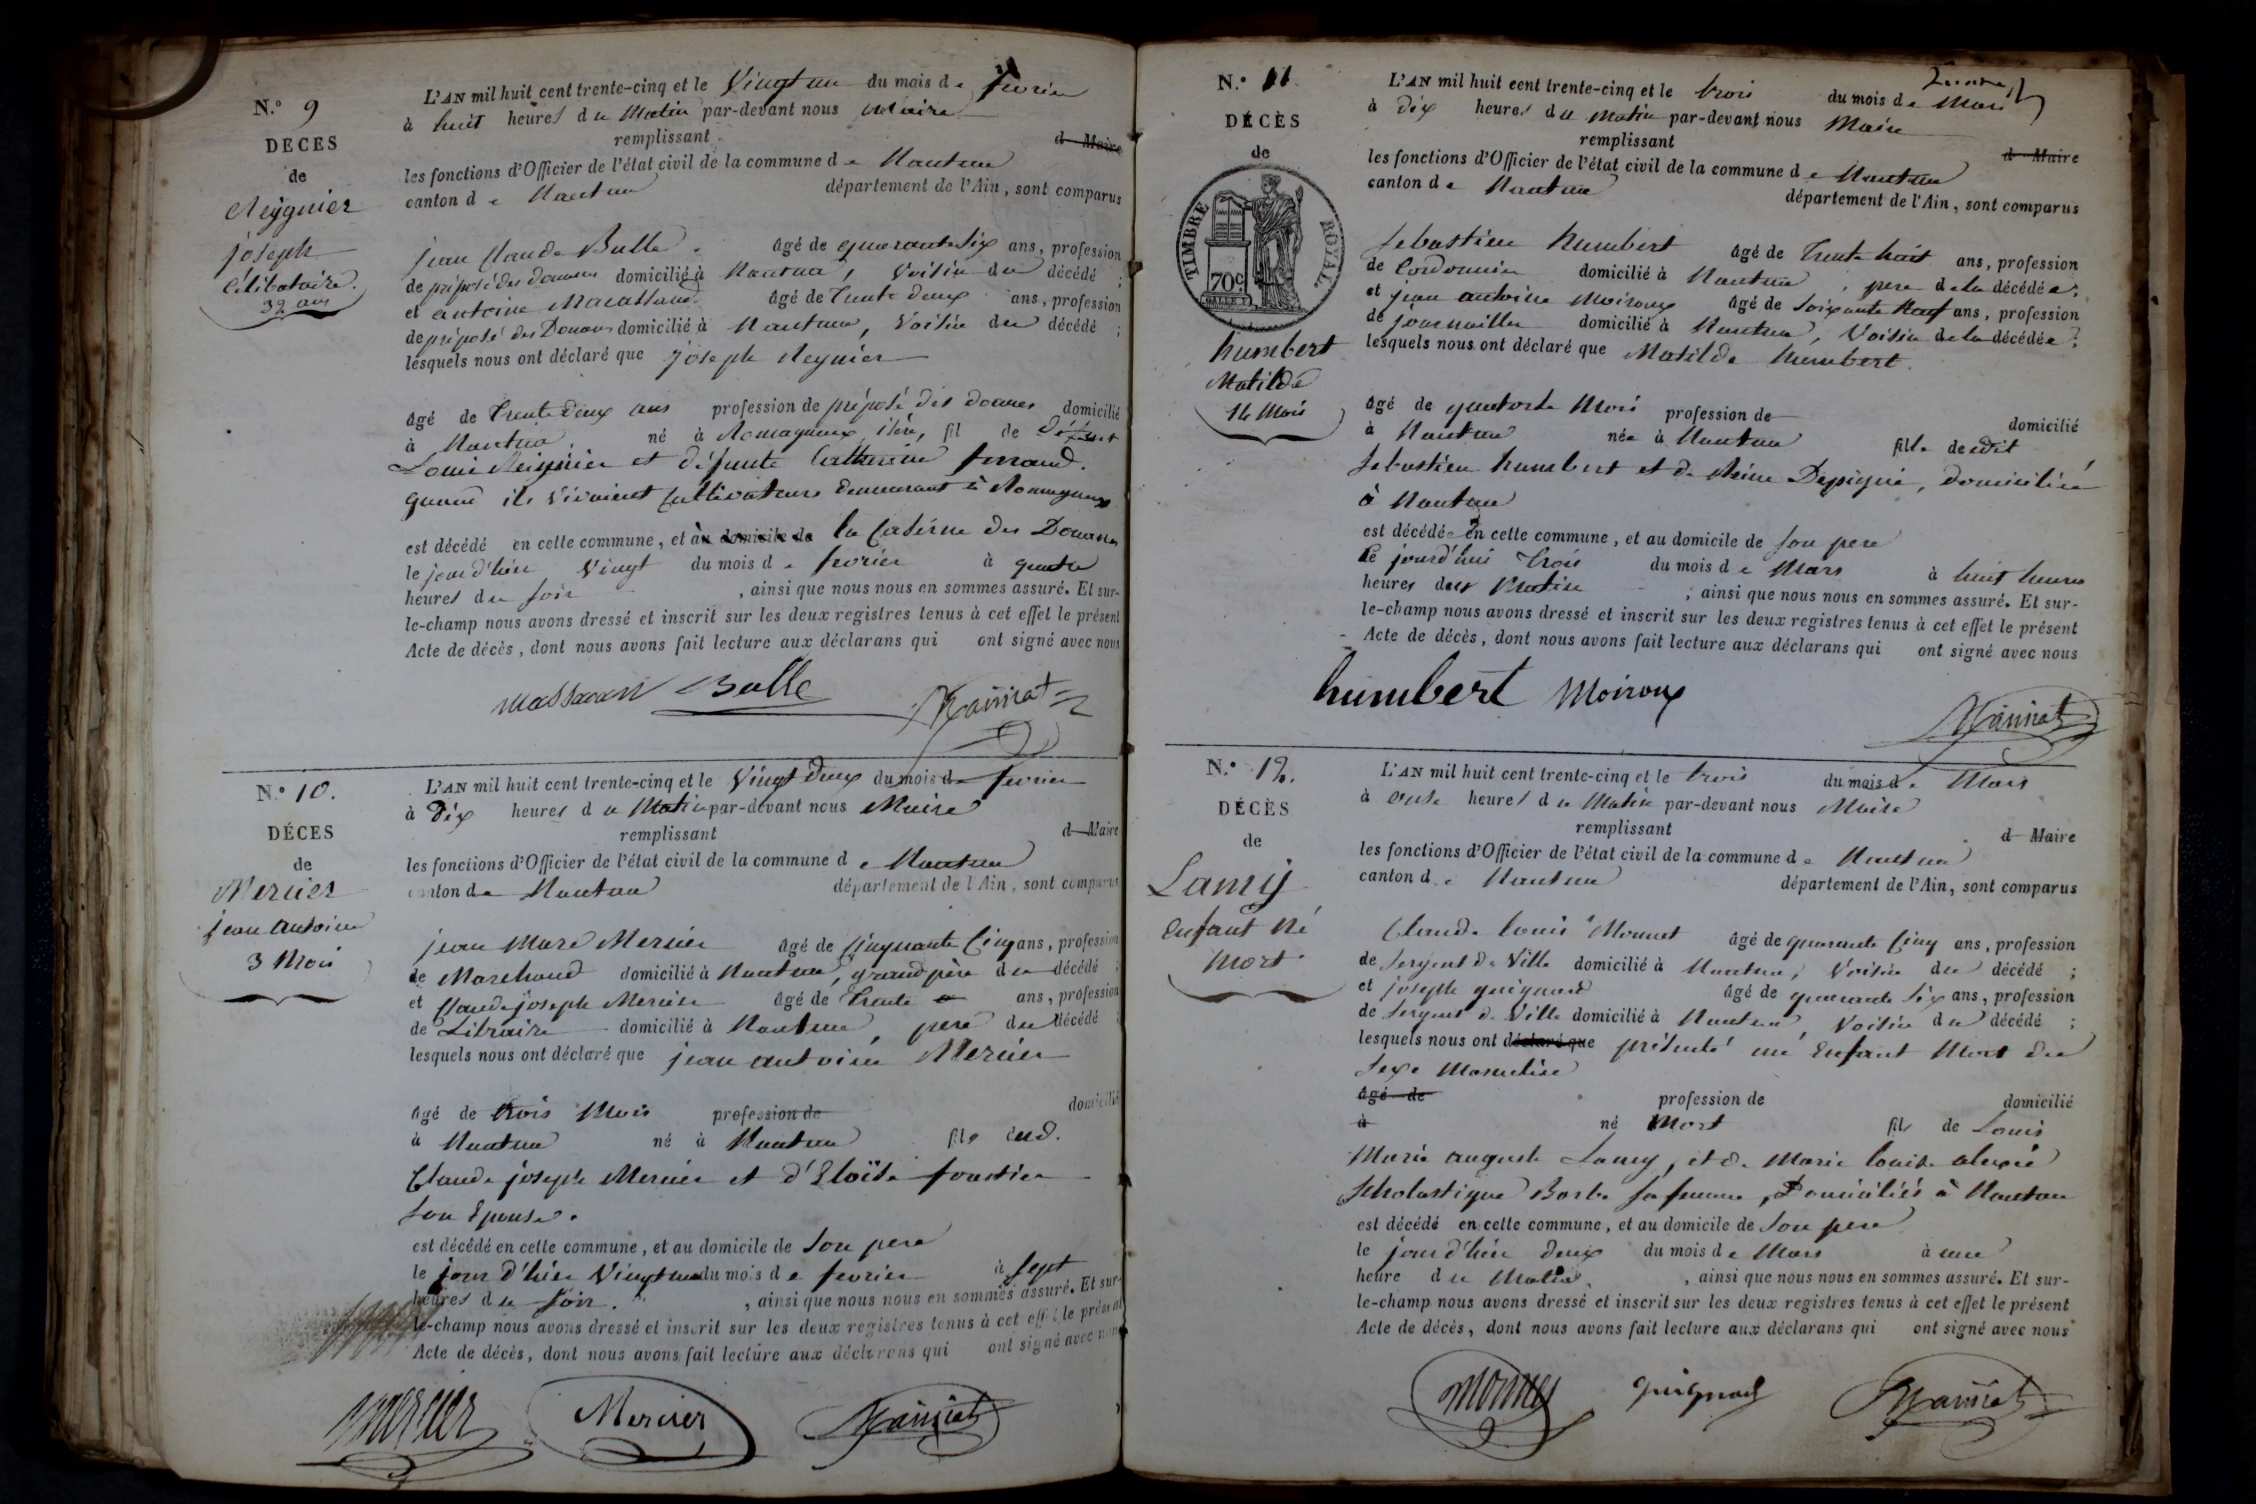 N.° 9
DECES
de
Neyguier
joseph
célibataire.
32 ans
L'AN mil huit cent trente-cinq et le Vingt un du mois de fevrier
à huit heures du Matin par-devant nous Maire
remplissant d Maire
les fonctions d'Officier de l'état civil de la commune de Nantua
canton de Nantua département de l'Ain, sont comparus
jean Claude Bulle âgé de quarante Six ans, profession
de préposé des douanes domicilié à Nantua, Voisin du décédé ;
et antoine Massand âgé de Trente deux ans, profession
de préposé des Douanes domicilié à Nantua, Voisin du décédé ;
lesquels nous ont déclaré que joseph Neyuier
âgé de Trente deux ans profession de préposé des douanes domicilié
à Nantua, né à Romagneux, isère, fil de Défunt
Louis Neyuier et défunte Catherine ferrand.
quand ils Vivoient Cultivateurs demeurant à Romagneux
est décédé en cette commune, et au domicile de la Caserne des Douanes
le jour d'hier Vingt du mois de fevrier à quatre
heures du soir, ainsi que nous nous en sommes assuré. Et sur-
le-champ nous avons dressé et inscrit sur les deux registres tenus à cet effet le présent
Acte de décès, dont nous avons fait lecture aux déclarans qui ont signé avec nous
Bulle
N.° 10.
DÉCES
de
Mercier
jean antoine
3 Mois
L'AN mil huit cent trente-cinq et le Vingt deux du mois de fevrier
à Dix heures du Matin par-devant nous Maire
remplissant d Maire
les fonctions d'Officier de l'état civil de la commune de Nantua
canton de Nantua département de l'Ain, sont comparus
jean Marc Mercier âgé de Cinquante Cinq ans, profession
de Marchand domicilié à Nantua, grand père du décédé ;
et Claude joseph Mercier âgé de Trente ans, profession
de Libraire domicilié à Nantua, pere du décédé ;
lesquels nous ont déclaré que jean antoine Mercier
âgé de trois Mois profession de domicilié
à Nantua né à Nantua fils dud.
Claude joseph Mercier et d'Eloïse fournier
son Epouse.
est décédé en cette commune, et au domicile de son pere
le jour d'hier Vingt un du mois de fevrier à sept
heures du soir, ainsi que nous nous en sommes assuré. Et sur-
le-champ nous avons dressé et inscrit sur les deux registres tenus à cet effet le présent
Acte de décès, dont nous avons fait lecture aux déclarans qui ont signé avec nous
mercier Mercier
N.° 11.
DÉCÈS
de
TIMBRE ROYAL.
70c
humbert
Matilde
14 Mois
L'AN mil huit cent trente-cinq et le trois du mois de Mars
à dix heures du matin par-devant nous Maire
remplissant d Maire
les fonctions d'Officier de l'état civil de la commune de Nantua
canton de Nantua département de l'Ain, sont comparus
sebastien humbert âgé de Trente huit ans, profession
de Cordonnier domicilié à Nantua, pere de la décédée ;
et jean antoine Moiroux âgé de soixante Neuf ans, profession
de journailler domicilié à Nantua, Voisin de la décédée ;
lesquels nous ont déclaré que Matilde humbert.
âgé de quatorze Mois profession de domicilié
à Nantua née à Nantua fille dudit
sebastien humbert et de Reine Depigni, domiciliée
à Nantua
est décédée en cette commune, et au domicile de son pere
Ce jourd'hui Trois du mois de Mars à huit heures
heures du Matin ; ainsi que nous nous en sommes assuré. Et sur-
le-champ nous avons dressé et inscrit sur les deux registres tenus à cet effet le présent
Acte de décès, dont nous avons fait lecture aux déclarans qui ont signé avec nous
humbert Moiroux
N.° 12.
DÉCÈS
de
Lamy
Enfant Né
Mort
L'AN mil huit cent trente-cinq et le trois du mois de Mars
à onze heures du Matin par-devant nous Maire
remplissant d Maire
les fonctions d'Officier de l'état civil de la commune de Nantua
canton de Nantua département de l'Ain, sont comparus
Claude Louis Monnet âgé de quarante Cinq ans, profession
de sergent de Ville domicilié à Nantua, Voisin du décédé ;
et joseph guignard âgé de quarante Six ans, profession
de sergent de Ville domicilié à Nantua, Voisin du décédé ;
lesquels nous ont déclaré que présenté un Enfant Mort du
sexe Masculin
âgé de profession de domicilié
à né Mort fils de Louis
Marie auguste Lamy, et de Marie louise alexie
scholastique Barbe sa femme, Domiciliés à Nantua
est décédé en cette commune, et au domicile de son pere
le jour d'hier deux du mois de Mars à une
heure du Matin, ainsi que nous nous en sommes assuré. Et sur-
le-champ nous avons dressé et inscrit sur les deux registres tenus à cet effet le présent
Acte de décès, dont nous avons fait lecture aux déclarans qui ont signé avec nous
guignard